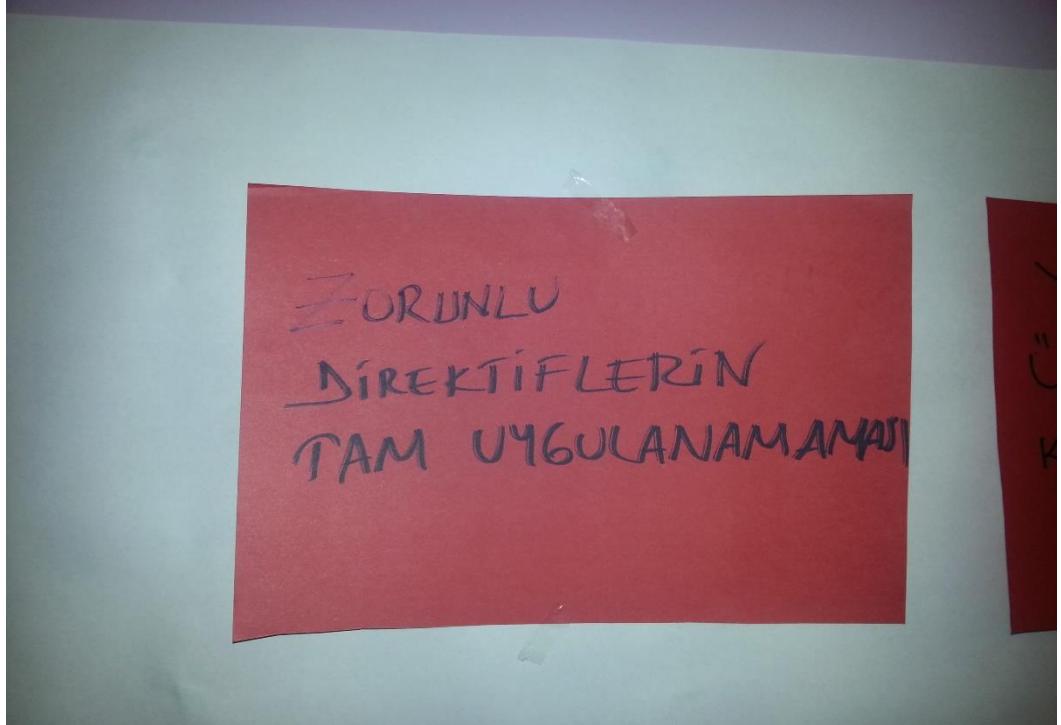 ZORUNLU
DİREKTİFLERİN
TAM UYGULANAMAMASI